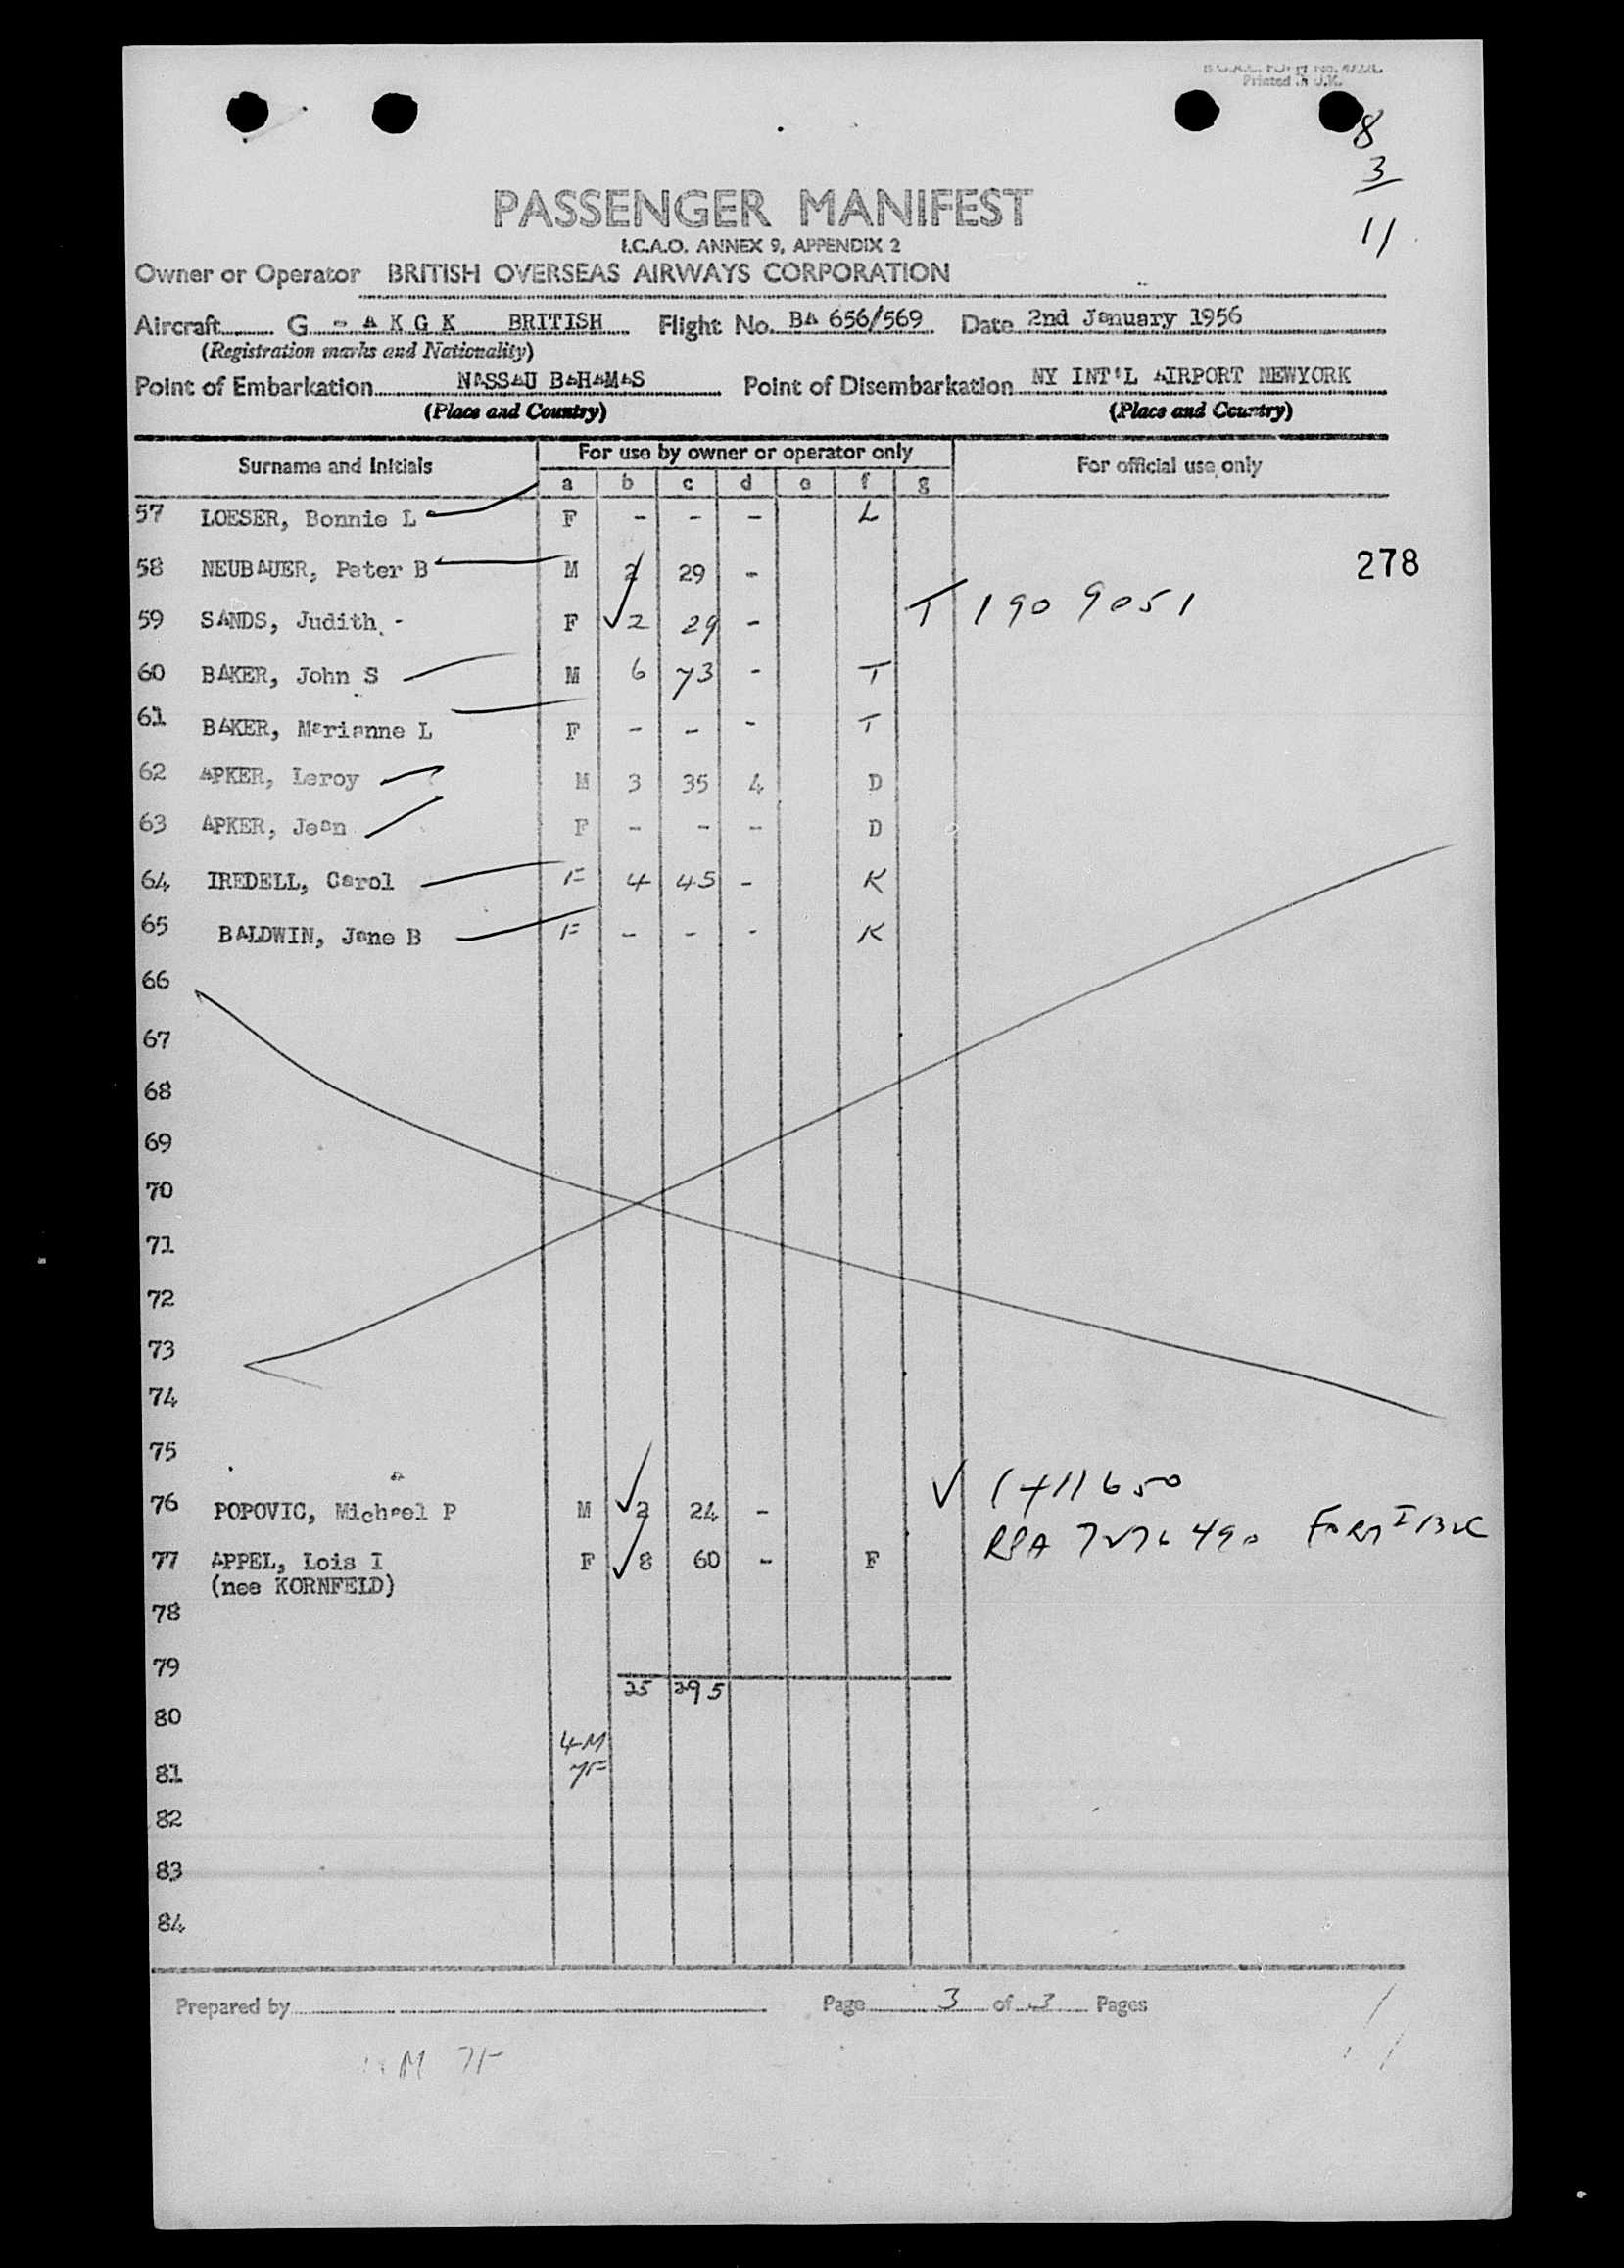 Printed in U.K.
8
3
11
PASSENGER MANIFEST
I.C.A.O. ANNEX 9, APPENDIX 2
Owner or Operator BRITISH OVERSEAS AIRWAYS CORPORATION
Aircraft G - A K G K BRITISH Flight No. BA 656/569 Date 2nd January 1956
(Registration marks and Nationality)
Point of Embarkation NASSAU BAHAMAS Point of Disembarkation NY INT'L AIRPORT NEWYORK
(Place and Country) (Place and Country)
Surname and Initials For use by owner or operator only For official use only
a b c d e f g
57 LOESER, Bonnie L F - - - L
278
58 NEUBAUER, Peter B M 2 29 -
59 SANDS, Judith - F 2 29 - T 190 9051
60 BAKER, John S M 6 73 - T
61 BAKER, Marianne L F - - - T
62 APKER, Leroy M 3 35 4 D
63 APKER, Jean F - - - D
64 IREDELL, Carol F 4 45 - K
65 BALDWIN, Jane B F - - - K
66
67
68
69
70
71
72
73
74
75
76 POPOVIC, Michael P M 2 24 -
77 APPEL, Lois I F 8 60 - F
(nee KORNFELD)
78
79
25 295
80
4M
7F
81
82
83
84
Prepared by Page 3 of 3 Pages
M 7F